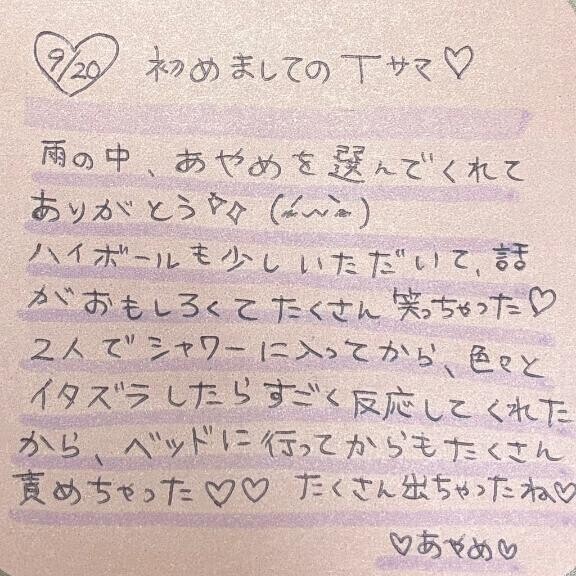 9/20 初めましてのTサマ♡
雨の中、あやめを選んでくれて
ありがとう✧✧
ハイボールも少しいただいて、話
がおもしろくてたくさん笑っちゃった♡
2人でシャワーに入ってから、色々と
イタズラしたらすごく反応してくれた
から、ベッドに行ってからもたくさん
責めちゃった♡♡ たくさん出ちゃったね♡
♡あやめ♡